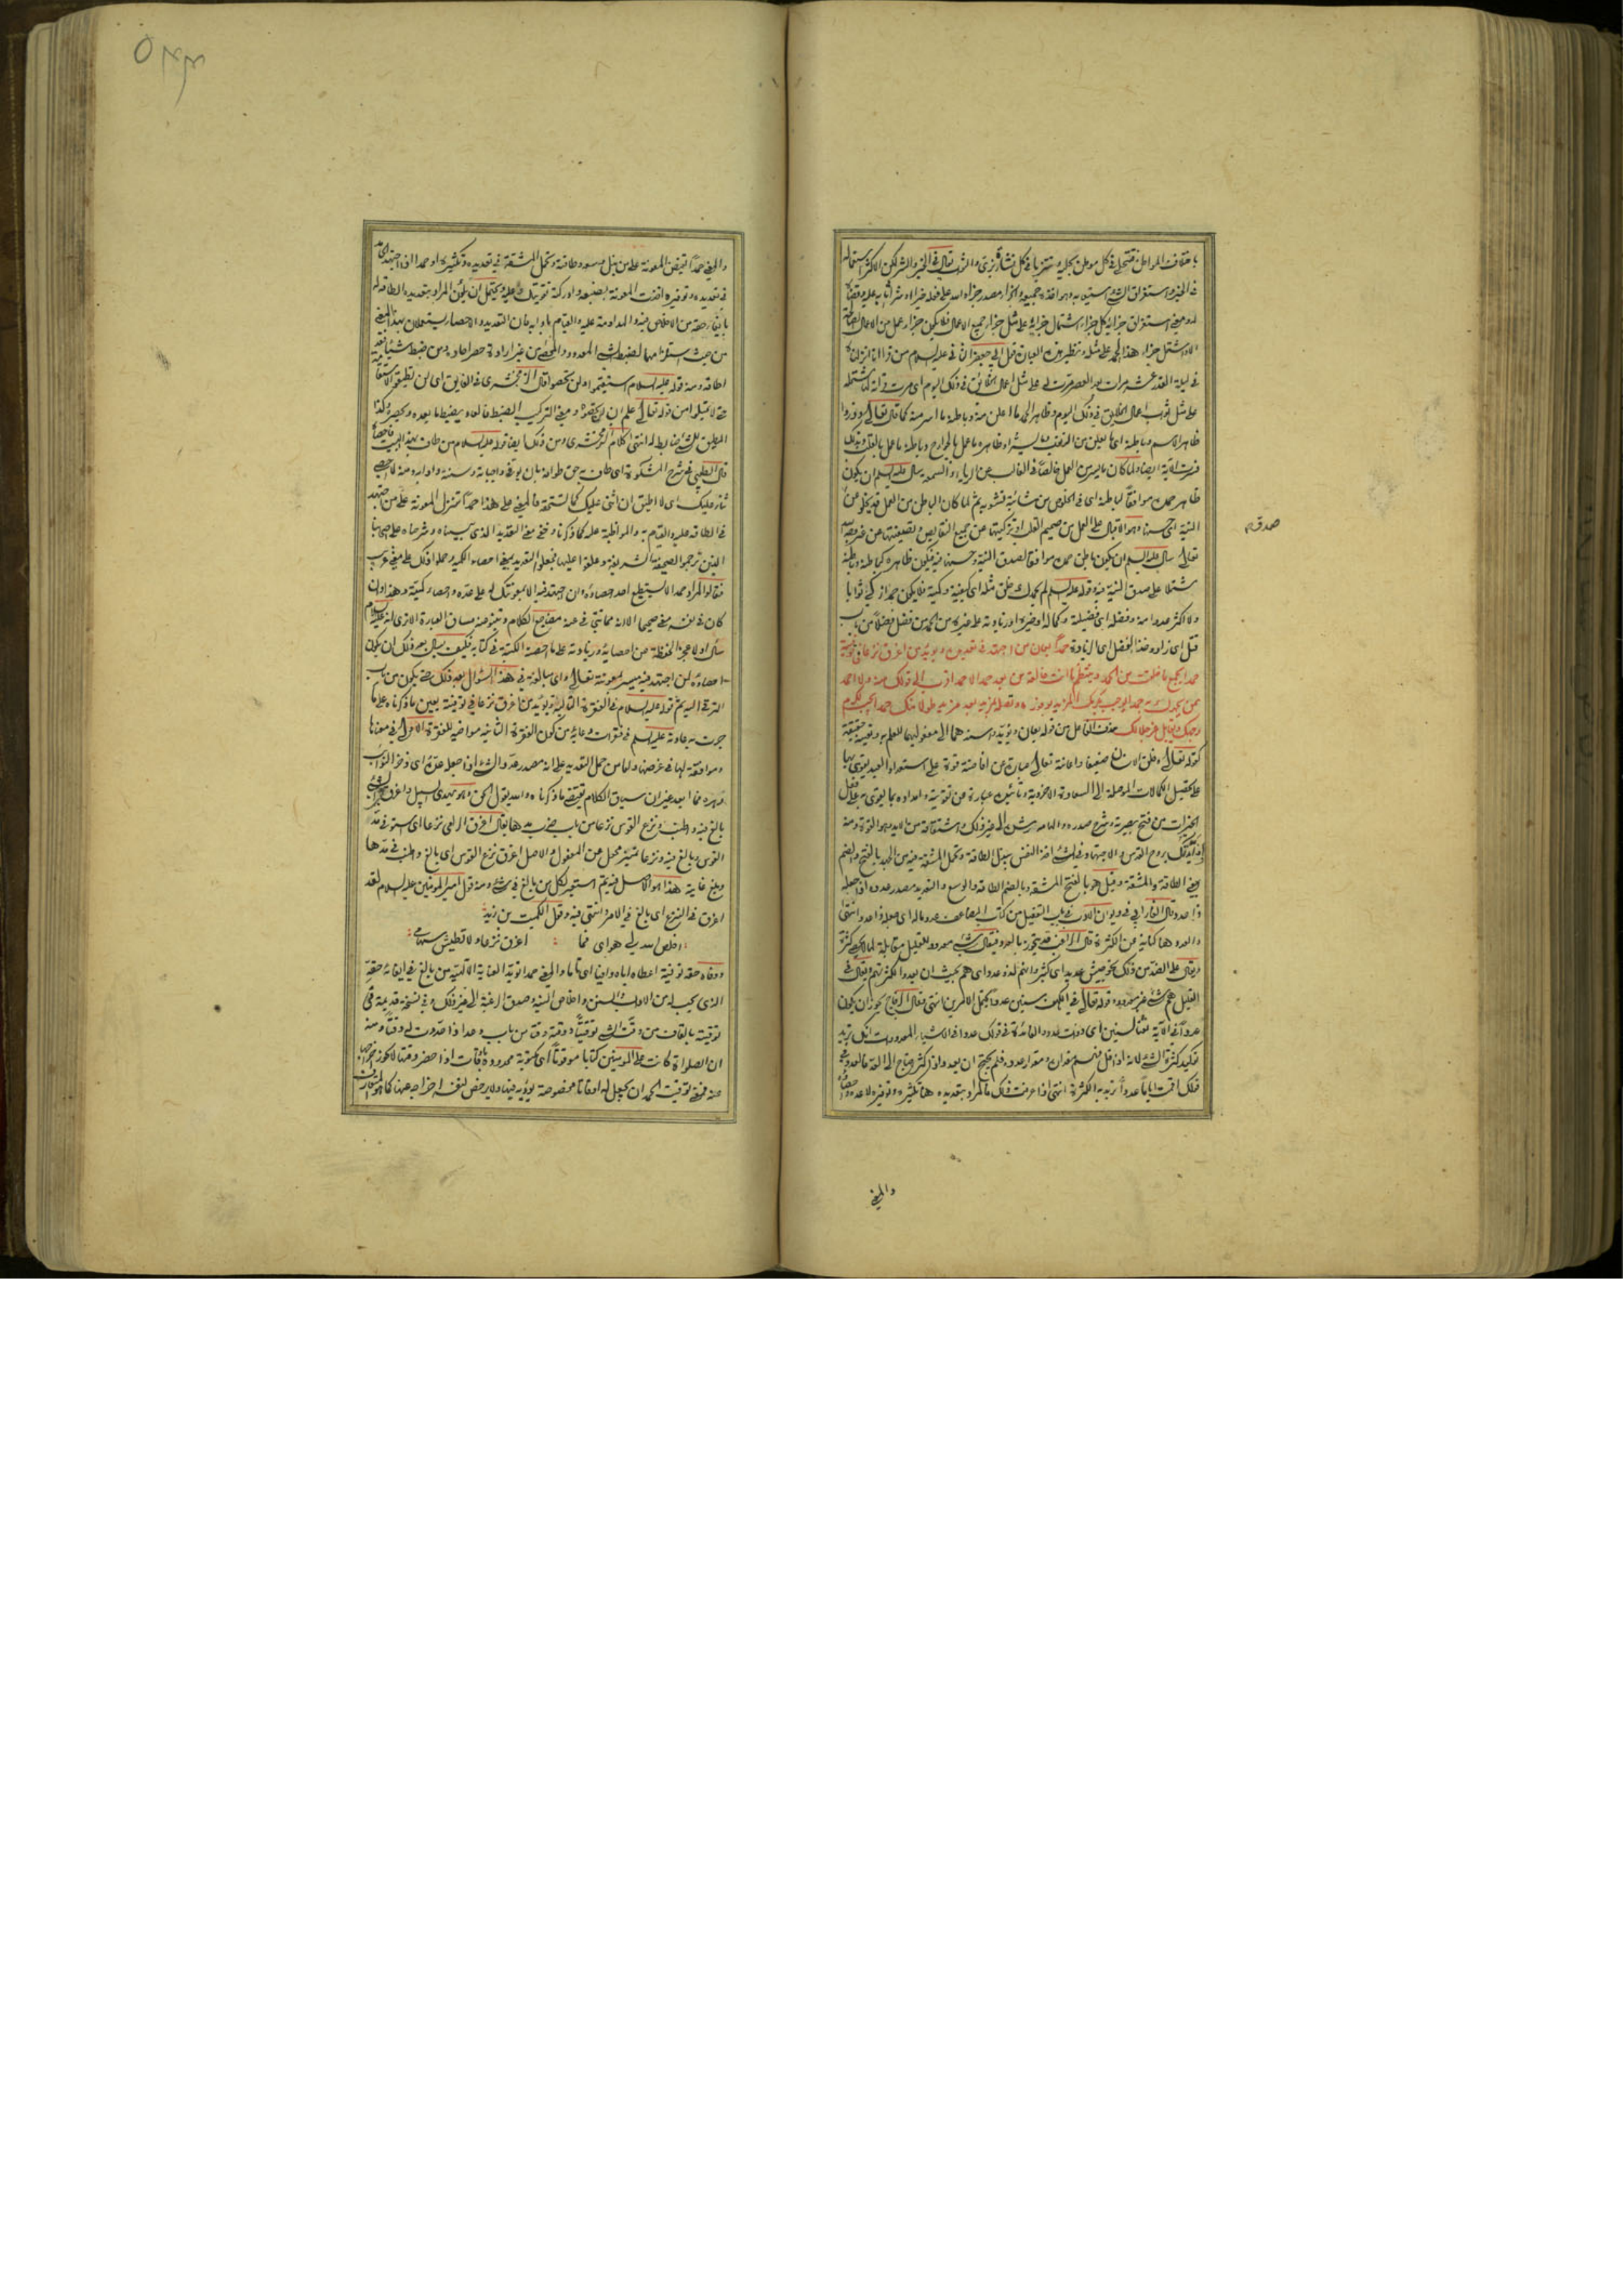 باختلاف المواطن فتجلى فى كل موطن بحلية وتتزيا فى كل نشأة بزى والثواب يقال فى الخير والشر لكن الاكثر استعماله
فى الخير واستغراق الشئ استيعابه وهو اخذه جميعه والجزاء مصدر جزاه الله على فعله خيرا او شرا اثابه عليه وقضاه
له ومعنى استغراق جزائه كل جزاء اشتمال جزائه على مثل جزاء جميع الاعمال فلا يكون جزاء عمل من الاعمال الصالحة
الا واشتمل جزاء هذا الحمد على مثله ونظير هذه العبارة قول ابى جعفر الثانى عليه السلام من قرأ انا انزلناه
فى ليلة القدر عشر مرات بعد العصر مرت له على مثل اعمال الخلائق فى ذلك اليوم اى مرت قرائته مشتملة
على مثل ثواب اعمال الخلائق فى ذلك اليوم وظاهر الحمد ما اعلن منه وباطنه ما اسر منه كما قال تعالى وذروا
ظاهر الاثم وباطنه اى ما يعلن من الذنوب وما يسر او ظاهره ما عمل بالجوارح وباطنه ما عمل بالقلب وبذلك
فسرت الآية ايضا ولما كان ما يسر من العمل خالصا فى الغالب عن الرياء والسمعة سأل عليه السلام ان يكون
ظاهر حمده موافقا لباطنه اى فى الخلوص من شائبة تشوبه ثم لما كان الباطن من العمل قد يخلو عن
النية الحسنة وهو الاقبال على العمل من صميم القلب او تزكيتها عن جميع النقايص وتصفيتها عن غير وجه الله
تعالى سأل عليه السلام ان يكون باطن حمده موافقا لصدق النية وحسنها فيه فيكون ظاهره كباطنه وباطنه
مشتملا على صدق النية فيه قوله عليه السلام لم يحمدك خلق مثله اى كيفية وكمية فلا يكون حمد ازكى ثوابا
ولا اكثر عددا منه وفضله اى فضيلة وكماله او خيره او زيادته على غيره من الحمد من فضل فضلا من باب
قتل اى زاد وخذ الفضل اى الزيادة حمدا يعان من اجتهد فى تعديده ويؤيد من اغرق نزعا فى توفيته
حمدا يجمع ما خلقت من الحمد وينتظم ما انت خالقه من بعد حمدا لا حمد اقرب الى قولك منه ولا احمد
ممن يحمدك به حمدا يوجب بكرمك المزيد بوفوره وتصله بمزيد بعد مزيد طولا منك حمدا يجب لكرم
وجهك ويقابل عز جلالك حذف الفاعل من قوله يعان ويؤيد واسندهما الى مفعوليهما للعلم به وتعينه حقيقة
كقوله تعالى وخلق الانسان ضعيفا واعانة تعالى عبارة عن افاضته قوة على استعداد العبد يقوى بها
على تحصيل الكمالات الموصلة الى السعادة الاخروية وتأييده عبارة عن تقويته وامداده بما يقوى به على فعل
الخيرات من فتح بصيرة وشرح صدره والهامه رشده الى غير ذلك واشتقاقه من الايد وهو القوة ومنه
اذ ايدتك بروح القدس والاجتهاد فى الشئ اخذ النفس ببذل الطاقة وتحمل المشقة فيه من الجهد بالفتح والضم
بمعنى الطاقة والمشقة وقيل هو بالفتح المشقة وبالضم الطاقة والوسع والتعديد مصدر عدده اذا جعله
ذا عدد قال الفارابى فى ديوان الادب فى باب التفعيل من كتاب المضاعف عدد ماله اى جعله ذا عدد انتهى
والعدد هنا كناية عن الكثرة قال الراغب قد يتجوز بالعدد فيقال شئ معدود للقليل مقابلة لما لا يحصى كثرة
ويقال على الضد من ذلك نحو جيش عديد اى كثير وانهم لذو عدد اى هم بحيث ان يعدوا كثرة انهم ويقال فى
القليل هم شئ غير معدود وقوله تعالى فى الكهف سنين عددا يحتمل الامرين انتهى وقال الزجاج يجوز ان يكون
عددا فى الآية نعتا لسنين اى ذوات عدد والفائدة فى قولك عدد فى الاشياء المعدودات انك تريد
توكيد كثرة الشئ لانه اذا قل فهم مقداره ومقدار عدده فلم يحتج ان يعد واذا كثر احتاج الى العد فالعدد فى
قولك اقمت اياما عددا تريد به الكثرة انتهى اذا عرفت ذلك فالمراد بتعديده هنا تكثيره وتوفيره لا عده واحصاؤه
صدق م
والمعنى
٥٣٣
والمعنى حمدا تفيض المعونة على من بذل مجهوده وطاقته وتحمل المشقة فى تعديده وتكثيره او حمدا اذا اجتهد احد
فى تعديده وتوفيره افضت المعونة بصنيعه وادركته تقويتك عليه ويحتمل ان يكون المراد بتعديده الطاقة له
بايفاء حقه من الاخلاص فيه والمداومة عليه والقيام بادابه فان التعديد والاحصاء يستعملان بهذا المعنى
من حيث استلزامهما لضبط الشئ المعدود والمحصى من غير ارادة حصر احاده ومن ضبط شيئا فقد
اطاقه ومنه قوله عليه السلام استقيموا ولن تحصوا قال الزمخشرى فى الفايق اى لن تطيقوا الاستقامة
حق لا تميلوا من قوله تعالى علم ان لن تحصوه ومعنى التركيب الضبط فالعاد يضبط ما يعده ويحصره وكذا
المطيق للشئ ضابط له انتهى كلام الزمخشرى ومن ذلك ايضا قوله عليه السلام من طاف بهذا البيت فاحصاه
قال الطيبى فى شرح المشكوة اى طاف به حق طوافه بان يوفى واجباته وسننه وادابه ومنه لا احصى
ثناء عليك اى لا اطيق ان اثنى عليك كما تستحقه فالمعنى على هذا حمدا تنزل المعونة على من اجتهد
فى الطاقة عليه والقيام به والمواظبة عليه كما ذكرنا وخفى معنى التعديد الذى بيناه وشرحناه على اصحابنا
الذين ترجموا الصحيفة الشريفة وعلقوا عليها فجعلوا التعديد بمعنى احصاء الكمية وحملوا ذلك على معنى غريب
فقالوا المراد حمدا لا يستطيع احد احصاءه وان اجتهد فيه الا بمعونتك له على عده واحصاء كميته وهذا وان
كان فى نفسه معنى صحيحا الا انه مما ينبئ عنه مقتضى الكلام وينبو عنه مساق العبارة الا ترى انه عليه السلام
سأل اولا عجز الحفظة عن احصائه وزيادته على ما احصته الكتبة فى كتابه فكيف يسأل بعد ذلك ان يكون
احصاؤه لمن اجتهد فيه ميسرا بمعونة تعالى واى مبالغة فى هذا السؤال بعد ذلك حتى يكون من باب
الترقى اليه ثم قوله عليه السلام فى الفقرة التالية ويؤيد من اغرق نزعا فى توفيته يعين ما ذكرناه على ما
جرت به عادته عليه السلم فى فقرات دعائه من كون الفقرة الثانيه مواخيه للفقرة الاولى فى معناها
وموافقة لها فى غرضها واما من حمل التعديد على انه مصدر عدد الشئ اذا جعله عدة اى ذخر الثواب
فهو مما ابعد غير ان سياق الكلام يقتضى ما ذكرناه والله يقول الحق وهو يهدى السبيل واغرق فى الشئ
بالغ فيه واطنب ونزع القوس نزعا من باب ضرب مدها يقال اغرق الرامى نزعا اى استوفى مد
القوس وبالغ فيه ونزعا تمييز محول عن المفعول والاصل اغرق نزع القوس اى بالغ واطنب فى مدها
وبلغ غاية هذا هو الاصل فيه ثم استعير لكل من بالغ فى شئ ومنه قول امير المومنين عليه السلام لقد
اغرق فى النزع اى بالغ فى الامر وانتهى فيه وقول الكميت بن زيد
اخلص الله لى هواى فما اغرق نزعا ولا تطيش سهامى
ووفاه حقه توفية اعطاه اياه وافيا اى تاما والمعنى حمدا تؤيد العناية الآلهية من بالغ فى ايفائه حقه
الذى يجب له من الاداب والسنن واخلاص النية وصدق الرغبة الى غير ذلك وفى نسخة قديمة فى
توقيته بالقاف من وقت الشئ توقيتا ووقته وقتا من باب وعد اذا حددت له وقتا ومنه
ان الصلواة كانت على المومنين كتابا موقوتا اى مكتوبة محدودة باوقات اذا حضر وقتها لا يجوز اخراجها
عنه فمعنى توقيت الحمد ان يجعل له اوقاتا مخصوصة يؤديه فيها ولا يرخص لنفسه اخراجه عنها كما هو شأن